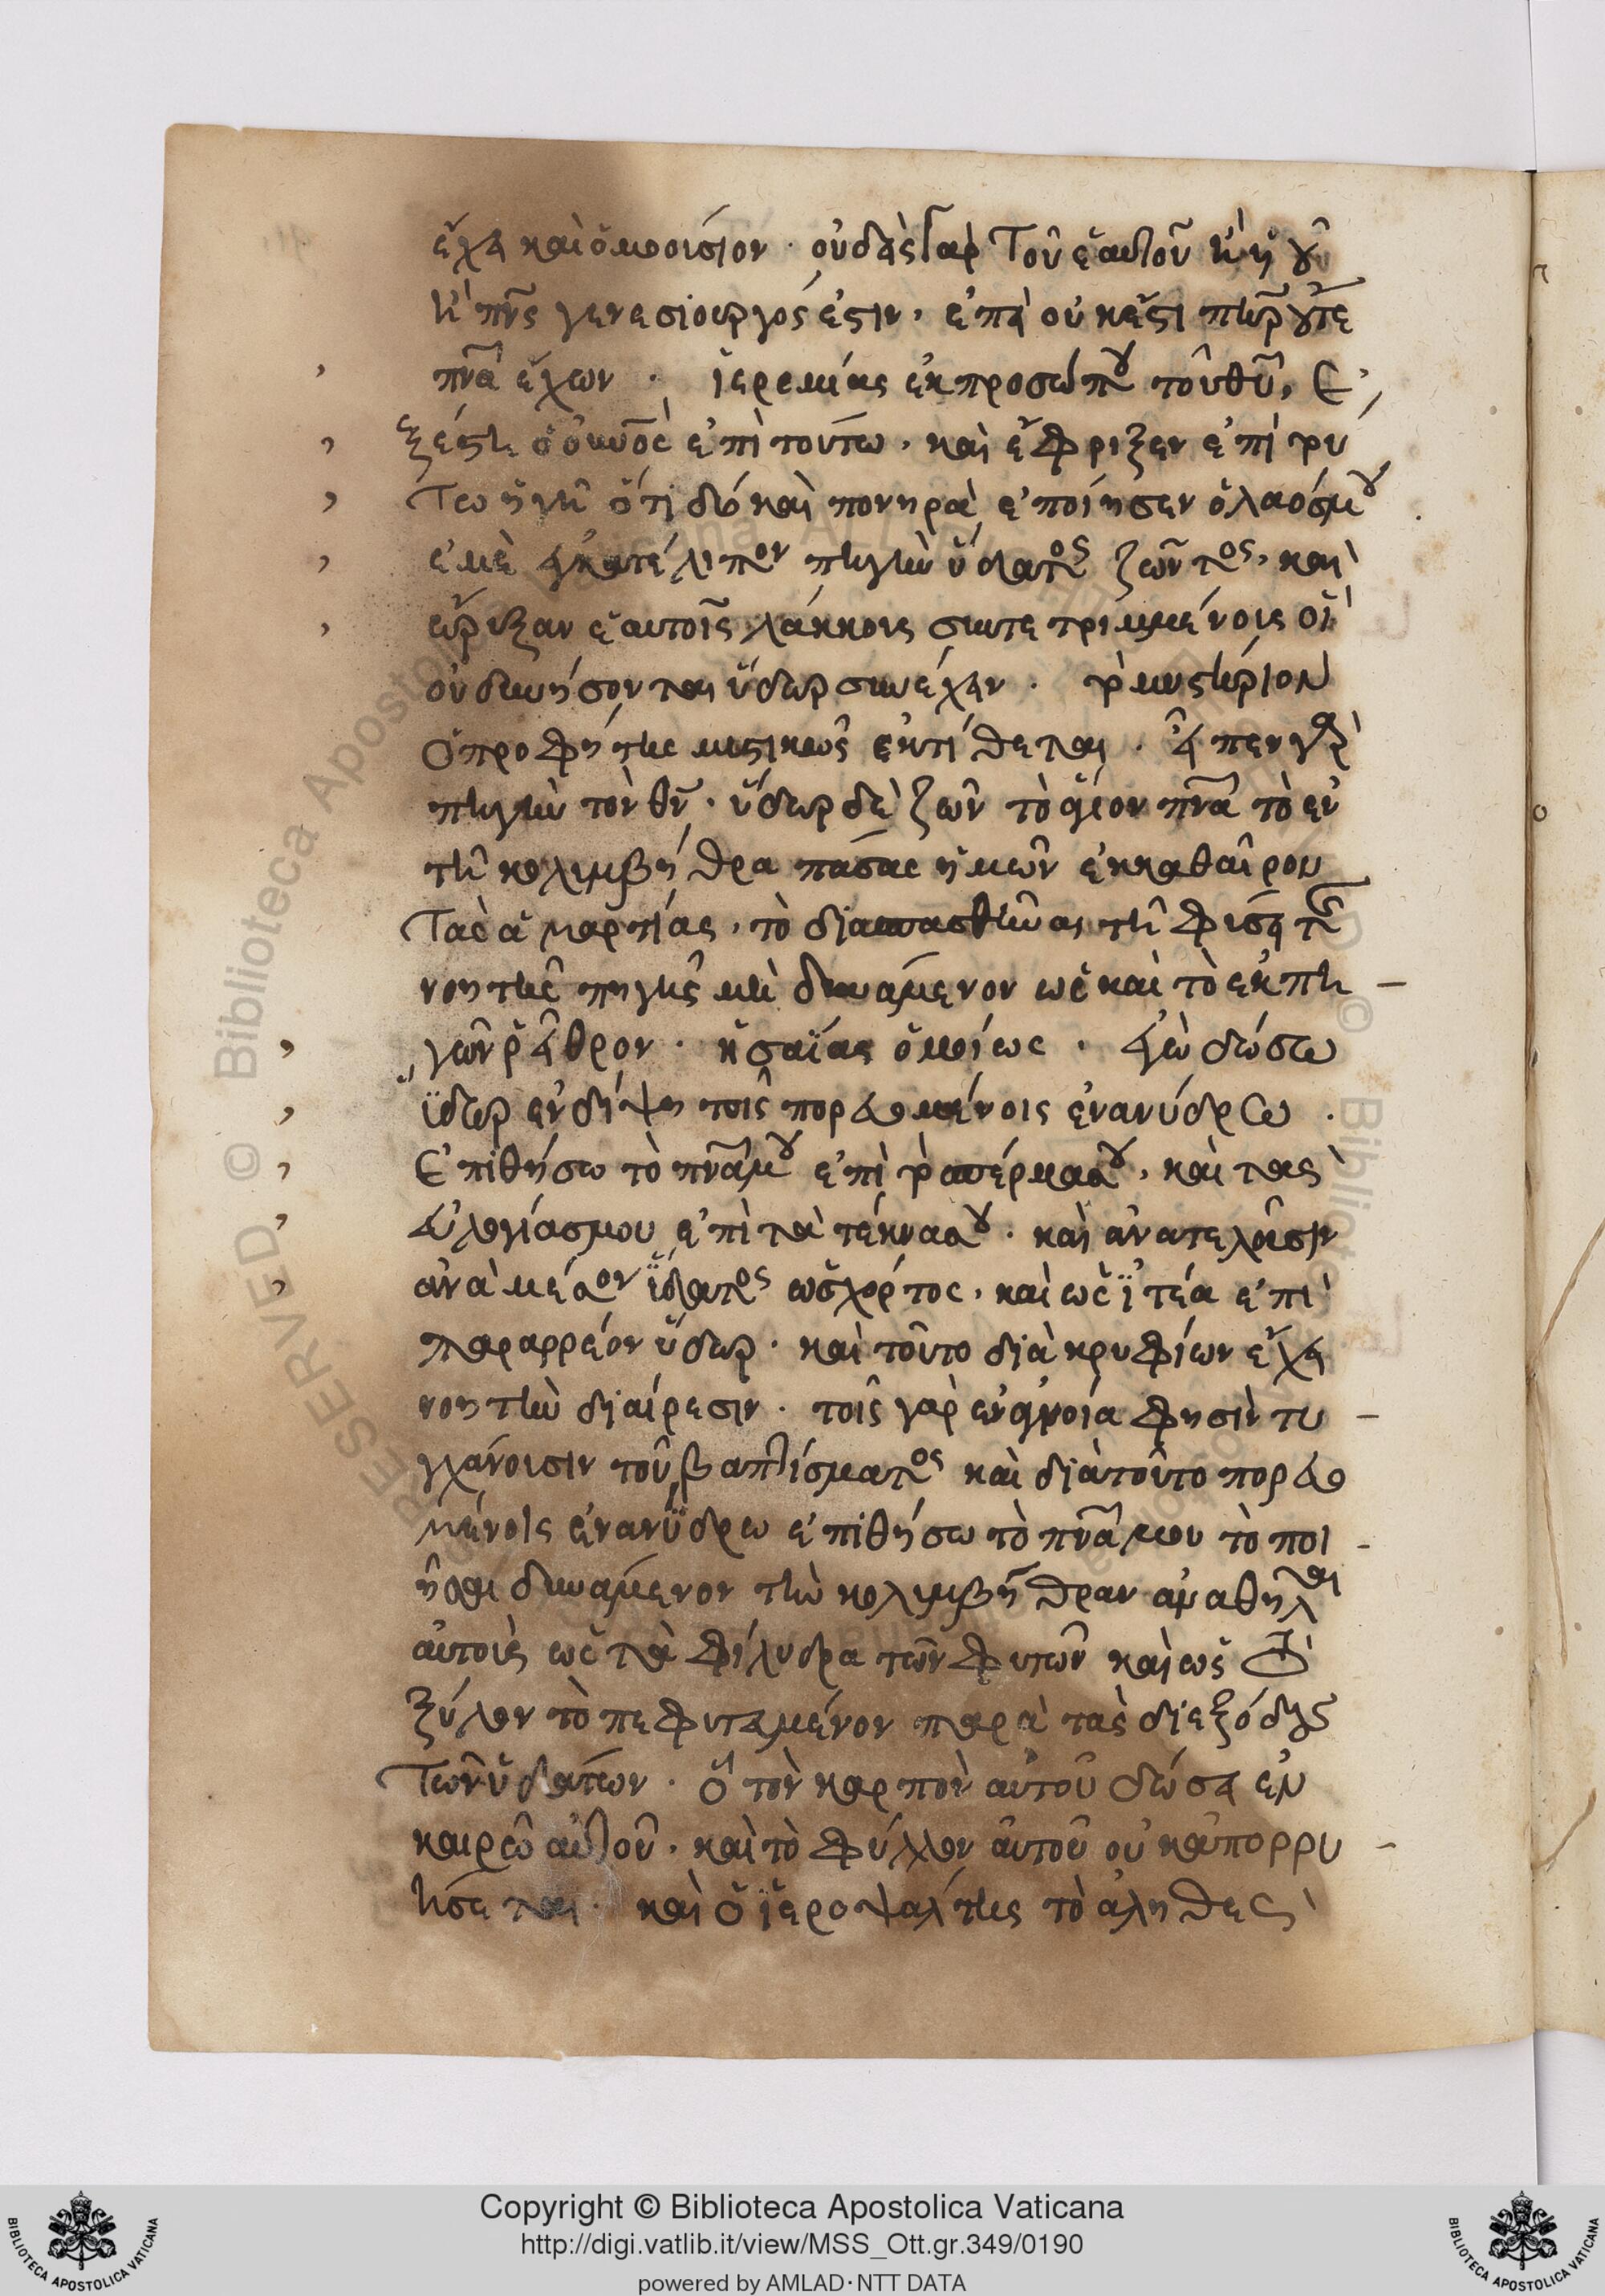 ἔχει καὶ ὁμοούσιον · οὐδεὶς γὰρ τοῦ ἑαυτοῦ κ(αὶ) ἢ υ(ἱο)ῦ
κ(αὶ) πν(εύματο)ς γενεσιουργός ἐστιν, ἐπεὶ οὐκ ἔστι π(ατ)ὴρ υ(ἱό)ν τε
πν(εῦμ)α ἔχων · ἱερεμίας ἐκ προσώπου τοῦ θ(εο)ῦ, Ἐ
ξέστη ὁ οὐ(ρα)νὸς ἐπὶ τούτω, καὶ ἔφριξεν ἐπὶ του
τω ἡ γῆ ὅτι δύο καὶ πονηρὰ ἐποίησεν ὁ λαός μου
ἐμὲ ἐγκατέλιπον πηγὴν ὕδατος ζῶντος, καὶ
ὤρυξαν ἑαυτοῖς λάκκους συντετριμμένους οἳ
οὐ δυνήσονται ὕδωρ συνέχειν · τὸ μυστήριον
ὁ προφήτης μυστικῶς ἐκτίθεται · εἶπεν γὰρ
πηγὴν τὸν θ(εὸ)ν · ὕδωρ δὲ ζῶν τὸ ἅγιον πν(εῦμ)α τὸ ἐν
τῆ κολυμβήθρα πάσας ἡμῶν ἐκκαθαῖρον
τὰς ἁμαρτίας, τὸ διασπασθῆναι τῆ φύσει τῆς
νοητῆς πηγῆς μὴ δυνάμενον ὡς καὶ τὸ ἐκ πη
γῶν ῥεῖθρον · ἡσαΐας ὁμοίως · ἐγὼ δώσω
ὕδωρ ἐν δίψη τοῖς πορευομένοις ἐν ανύδρω ·
Ἐπιθήσω τὸ πν(εῦμ)α μου ἐπὶ τὸ σπέρμα σου, καὶ τὰς
εὐλογίας μου ἐπὶ τὰ τέκνα σου · καὶ ἀνατελοῦσιν
ἀνὰ μέσον ὕδατος ὡς χόρτος, καὶ ὡς ἰτέα ἐπὶ
παραρρέον ὕδωρ · καὶ τοῦτο διὰ κρυφίων ἔχει
νοητὴν διαίρεσιν · τοῖς γὰρ ἐν ἀγνοία φησὶν τυ
γχάνουσιν τοῦ βαπτίσματος καὶ διὰ τοῦτο πορευο
μένοις ἐν ανύδρω ἐπιθήσω τὸ πν(εῦμ)α μου τὸ ποι
ῆσαι δυνάμενον τὴν κολυμβήθραν αμαθηλαι
αὐτοὺς ὡς τὰ φίλυδρα τῶν φυτῶν καὶ ὡς τὸ
ξύλον τὸ πεφυτευμένον παρὰ τὰς διεξόδους
τῶν ὑδάτων · ὃ τὸν καρπὸν αὐτοῦ δώσει ἐν
καιρῶ αὐτοῦ · καὶ τὸ φύλλον αὐτοῦ οὐκ ἀπορρυ
ήσεται · καὶ ὁ ἱεροψάλτης τὸ ἀληθὲς
Copyright © Biblioteca Apostolica Vaticana
http://digi.vatlib.it/view/MSS_Ott.gr.349/0190
powered by AMLAD·NTT DATA